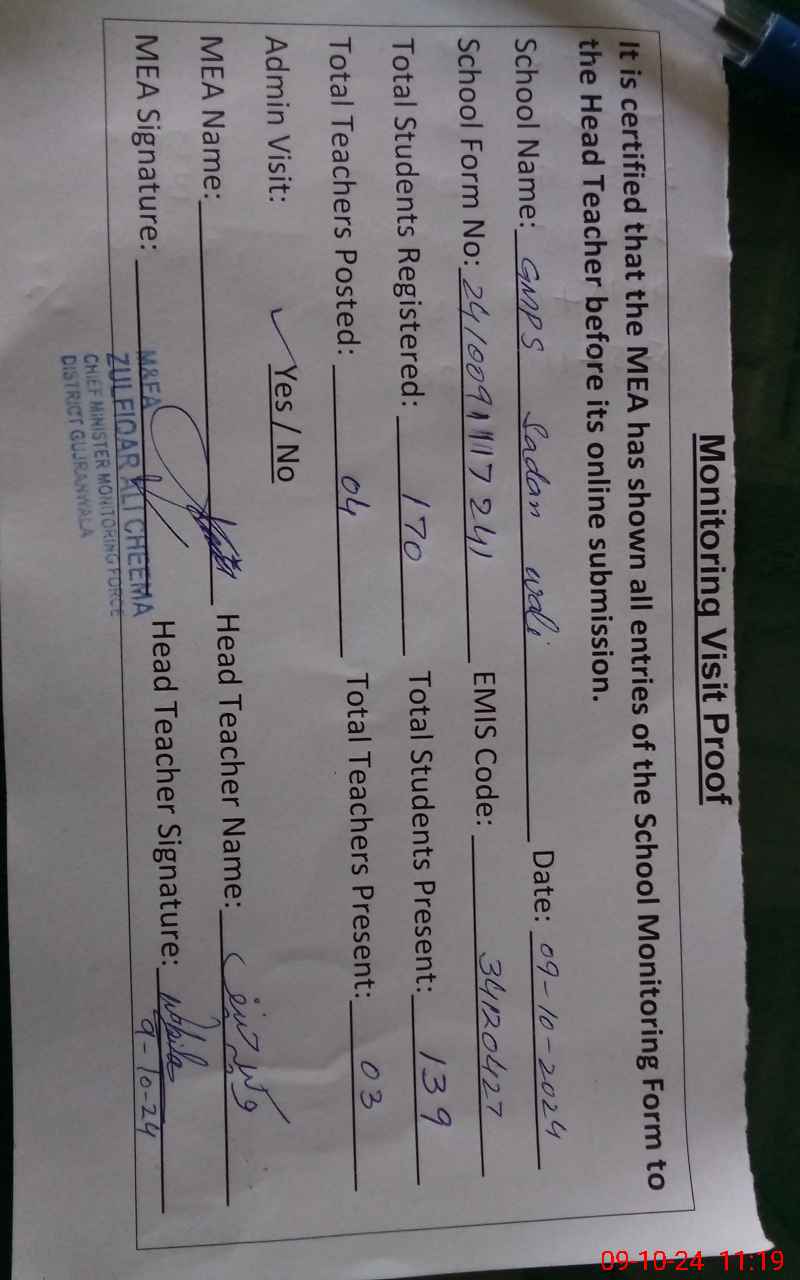 Monitoring Visit Proof
It is certified that the MEA has shown all entries of the School Monitoring Form to
the Head Teacher before its online submission.
School Name: GMPS Sadan wali Date: 09-10-2024
School Form No: EMIS Code: 34120427
Total Students Registered: 170 Total Students Present: 139
Total Teachers Posted: 04 Total Teachers Present: 03
Admin Visit: ✓ Yes / No
MEA Name: Head Teacher Name:
MEA Signature: Head Teacher Signature:
9-10-24
M&EA
ZULFIQAR ALI CHEEMA
CHIEF MINISTER MONITORING FORCE
DISTRICT GUJRANWALA
09-10-24 11:19